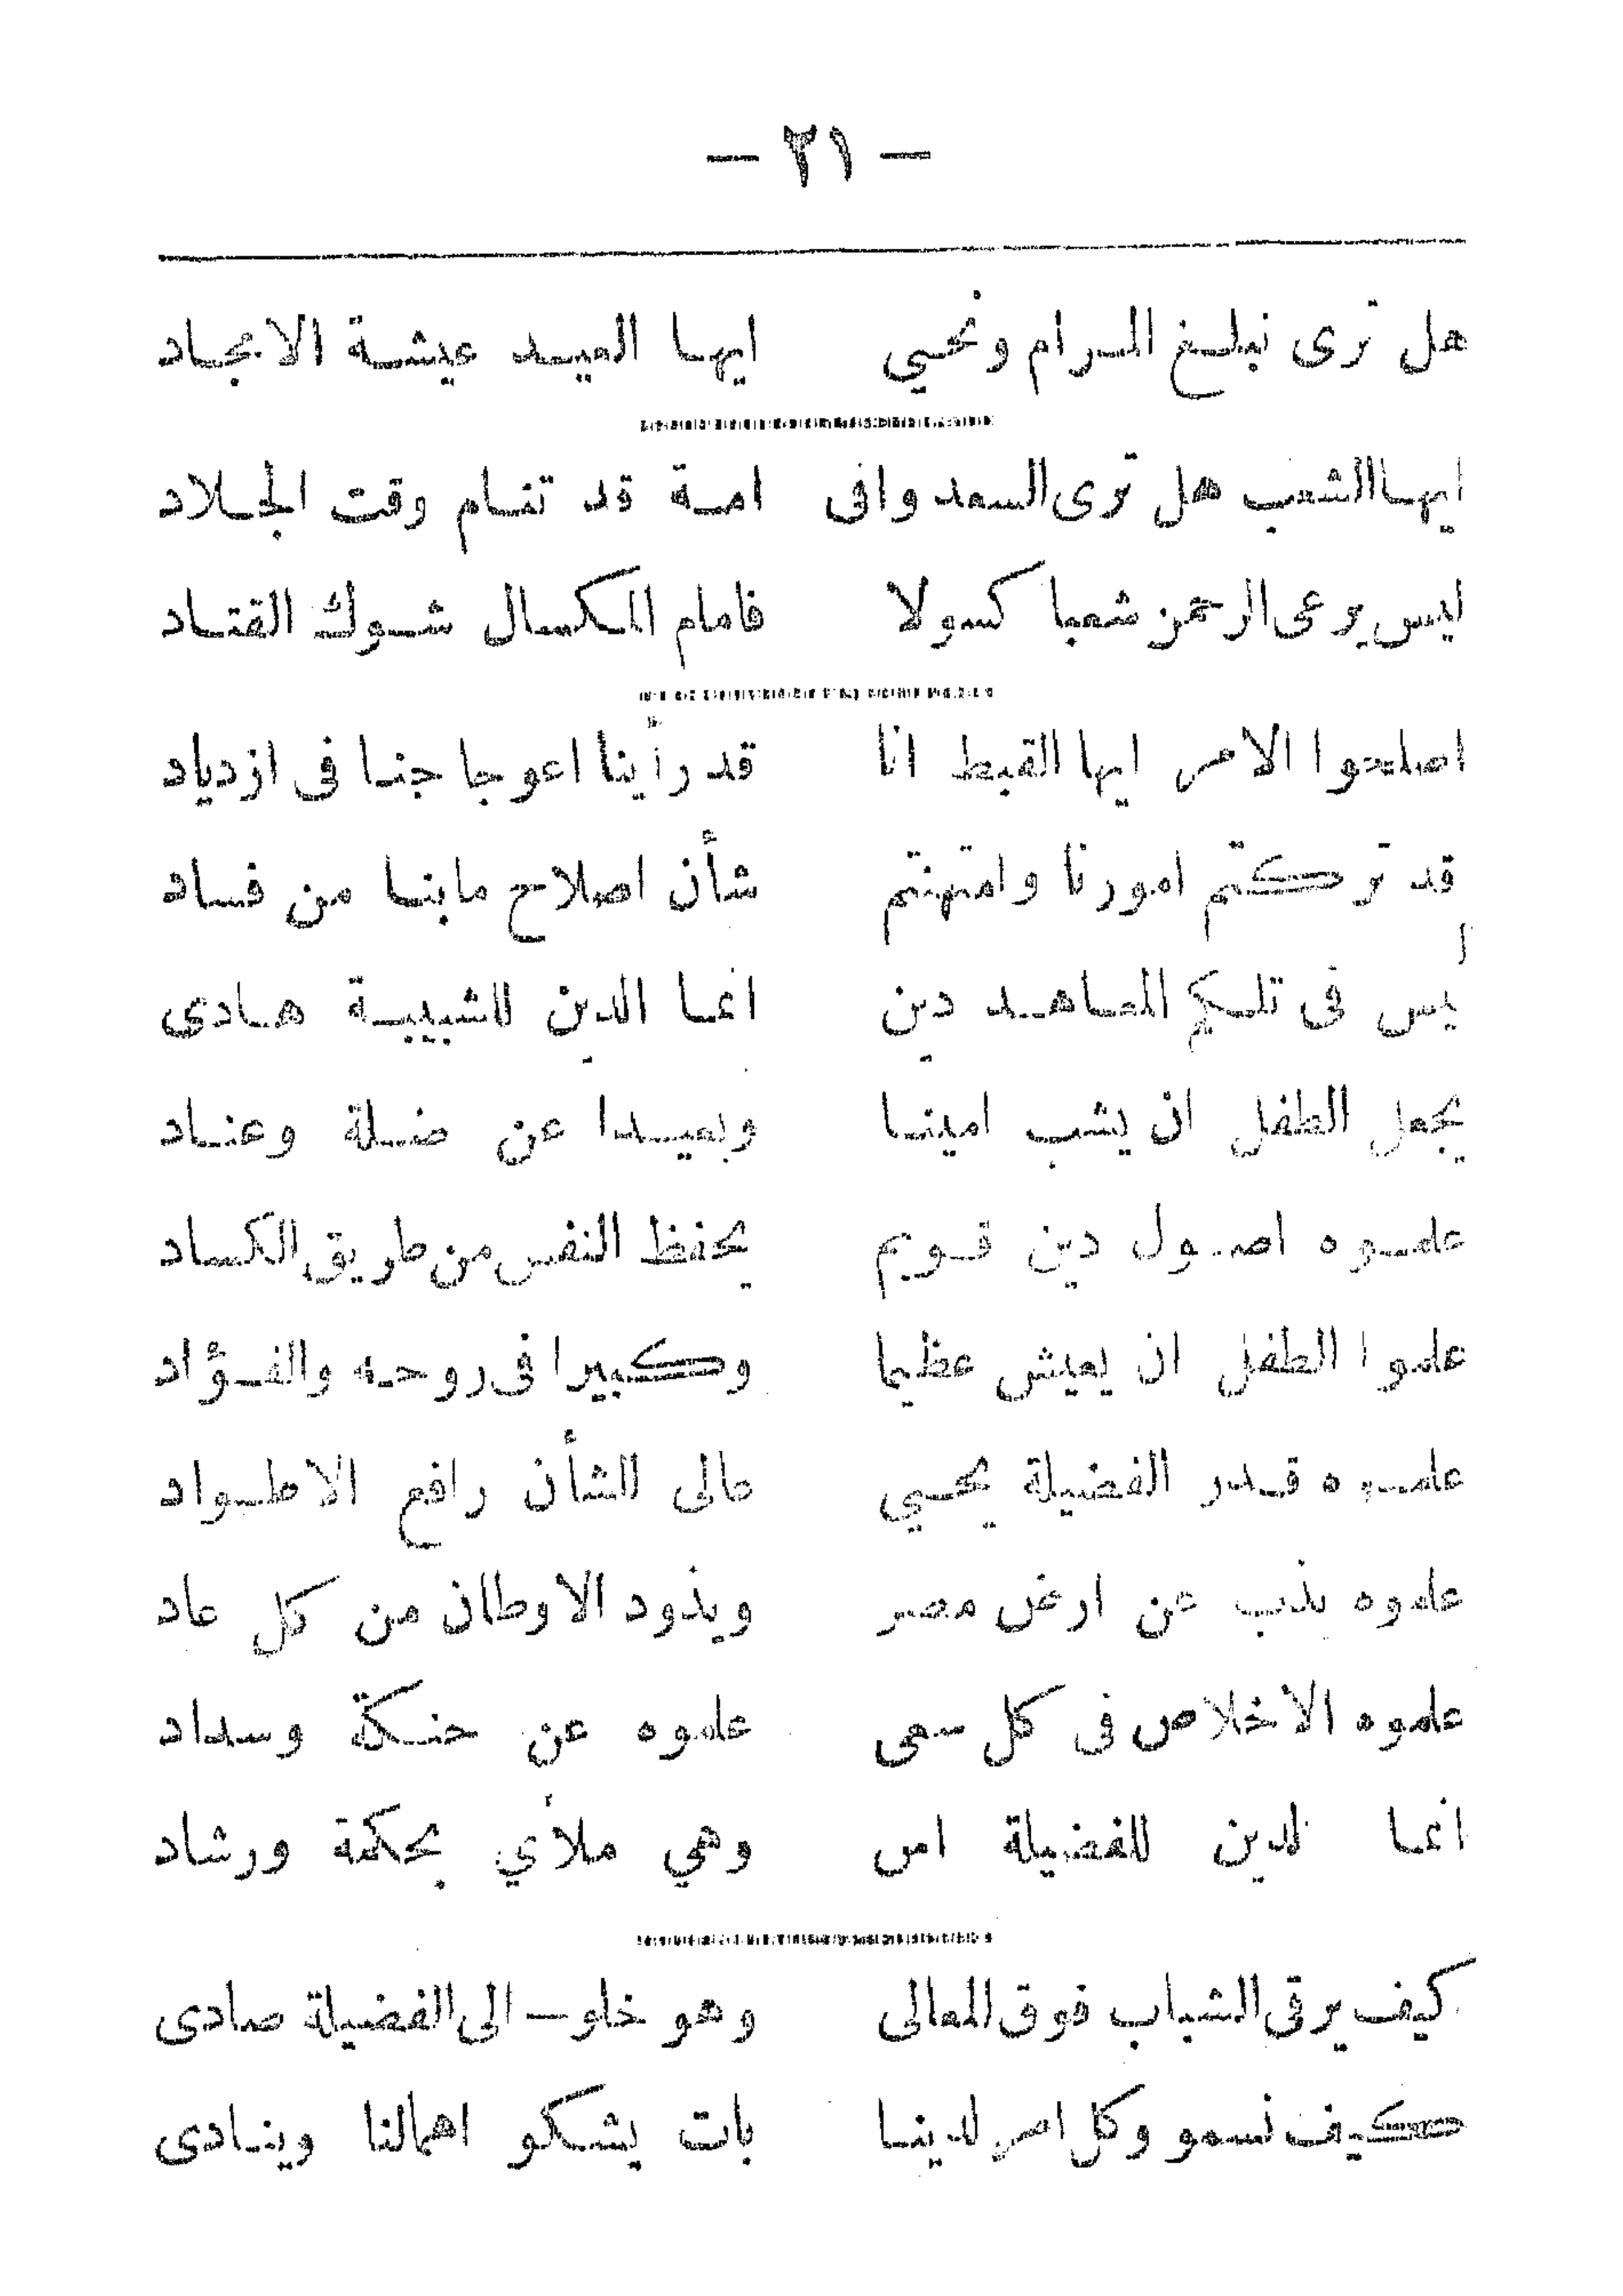 — ٢١ —
هل ترى نبلغ المرام ونحيي ايها العيد عيشة الامجاد
ايها الشعب هل ترى السعد وافى امة قد تنام وقت الجلاد
ليس يرعى الرحمن شعبا كسولا فامام المكسال شوك القتاد
اصلحوا الامر ايها القبط انا قد رأينا اعوجاجنا فى ازدياد
قد تركتم امورنا وامتهنتم شأن اصلاح مابنا من فساد
ليس فى تلكم المعاهد دين انما الدين للشبيبة هادى
يجعل الطفل ان يشب امينا وبعيدا عن ضلة وعناد
علموه اصول دين قويم يحفظ النفس من طريق الكساد
علموا الطفل ان يعيش عظيما وكبيرا فى روحه والفؤاد
علموه قدر الفضيلة يحيي عالى الشأن رافع الاطواد
علموه يذب عن ارض مصر ويذود الاوطان من كل عاد
علموه الاخلاص فى كل سعى علموه عن حنكة وسداد
انما الدين للفضيلة اس وهي ملأي بحكمة ورشاد
كيف يرقى الشباب فوق المعالى وهو خلو — الى الفضيلة صادى
كيف نسمو وكل امر لدينا بات يشكو اهمالنا وينادى